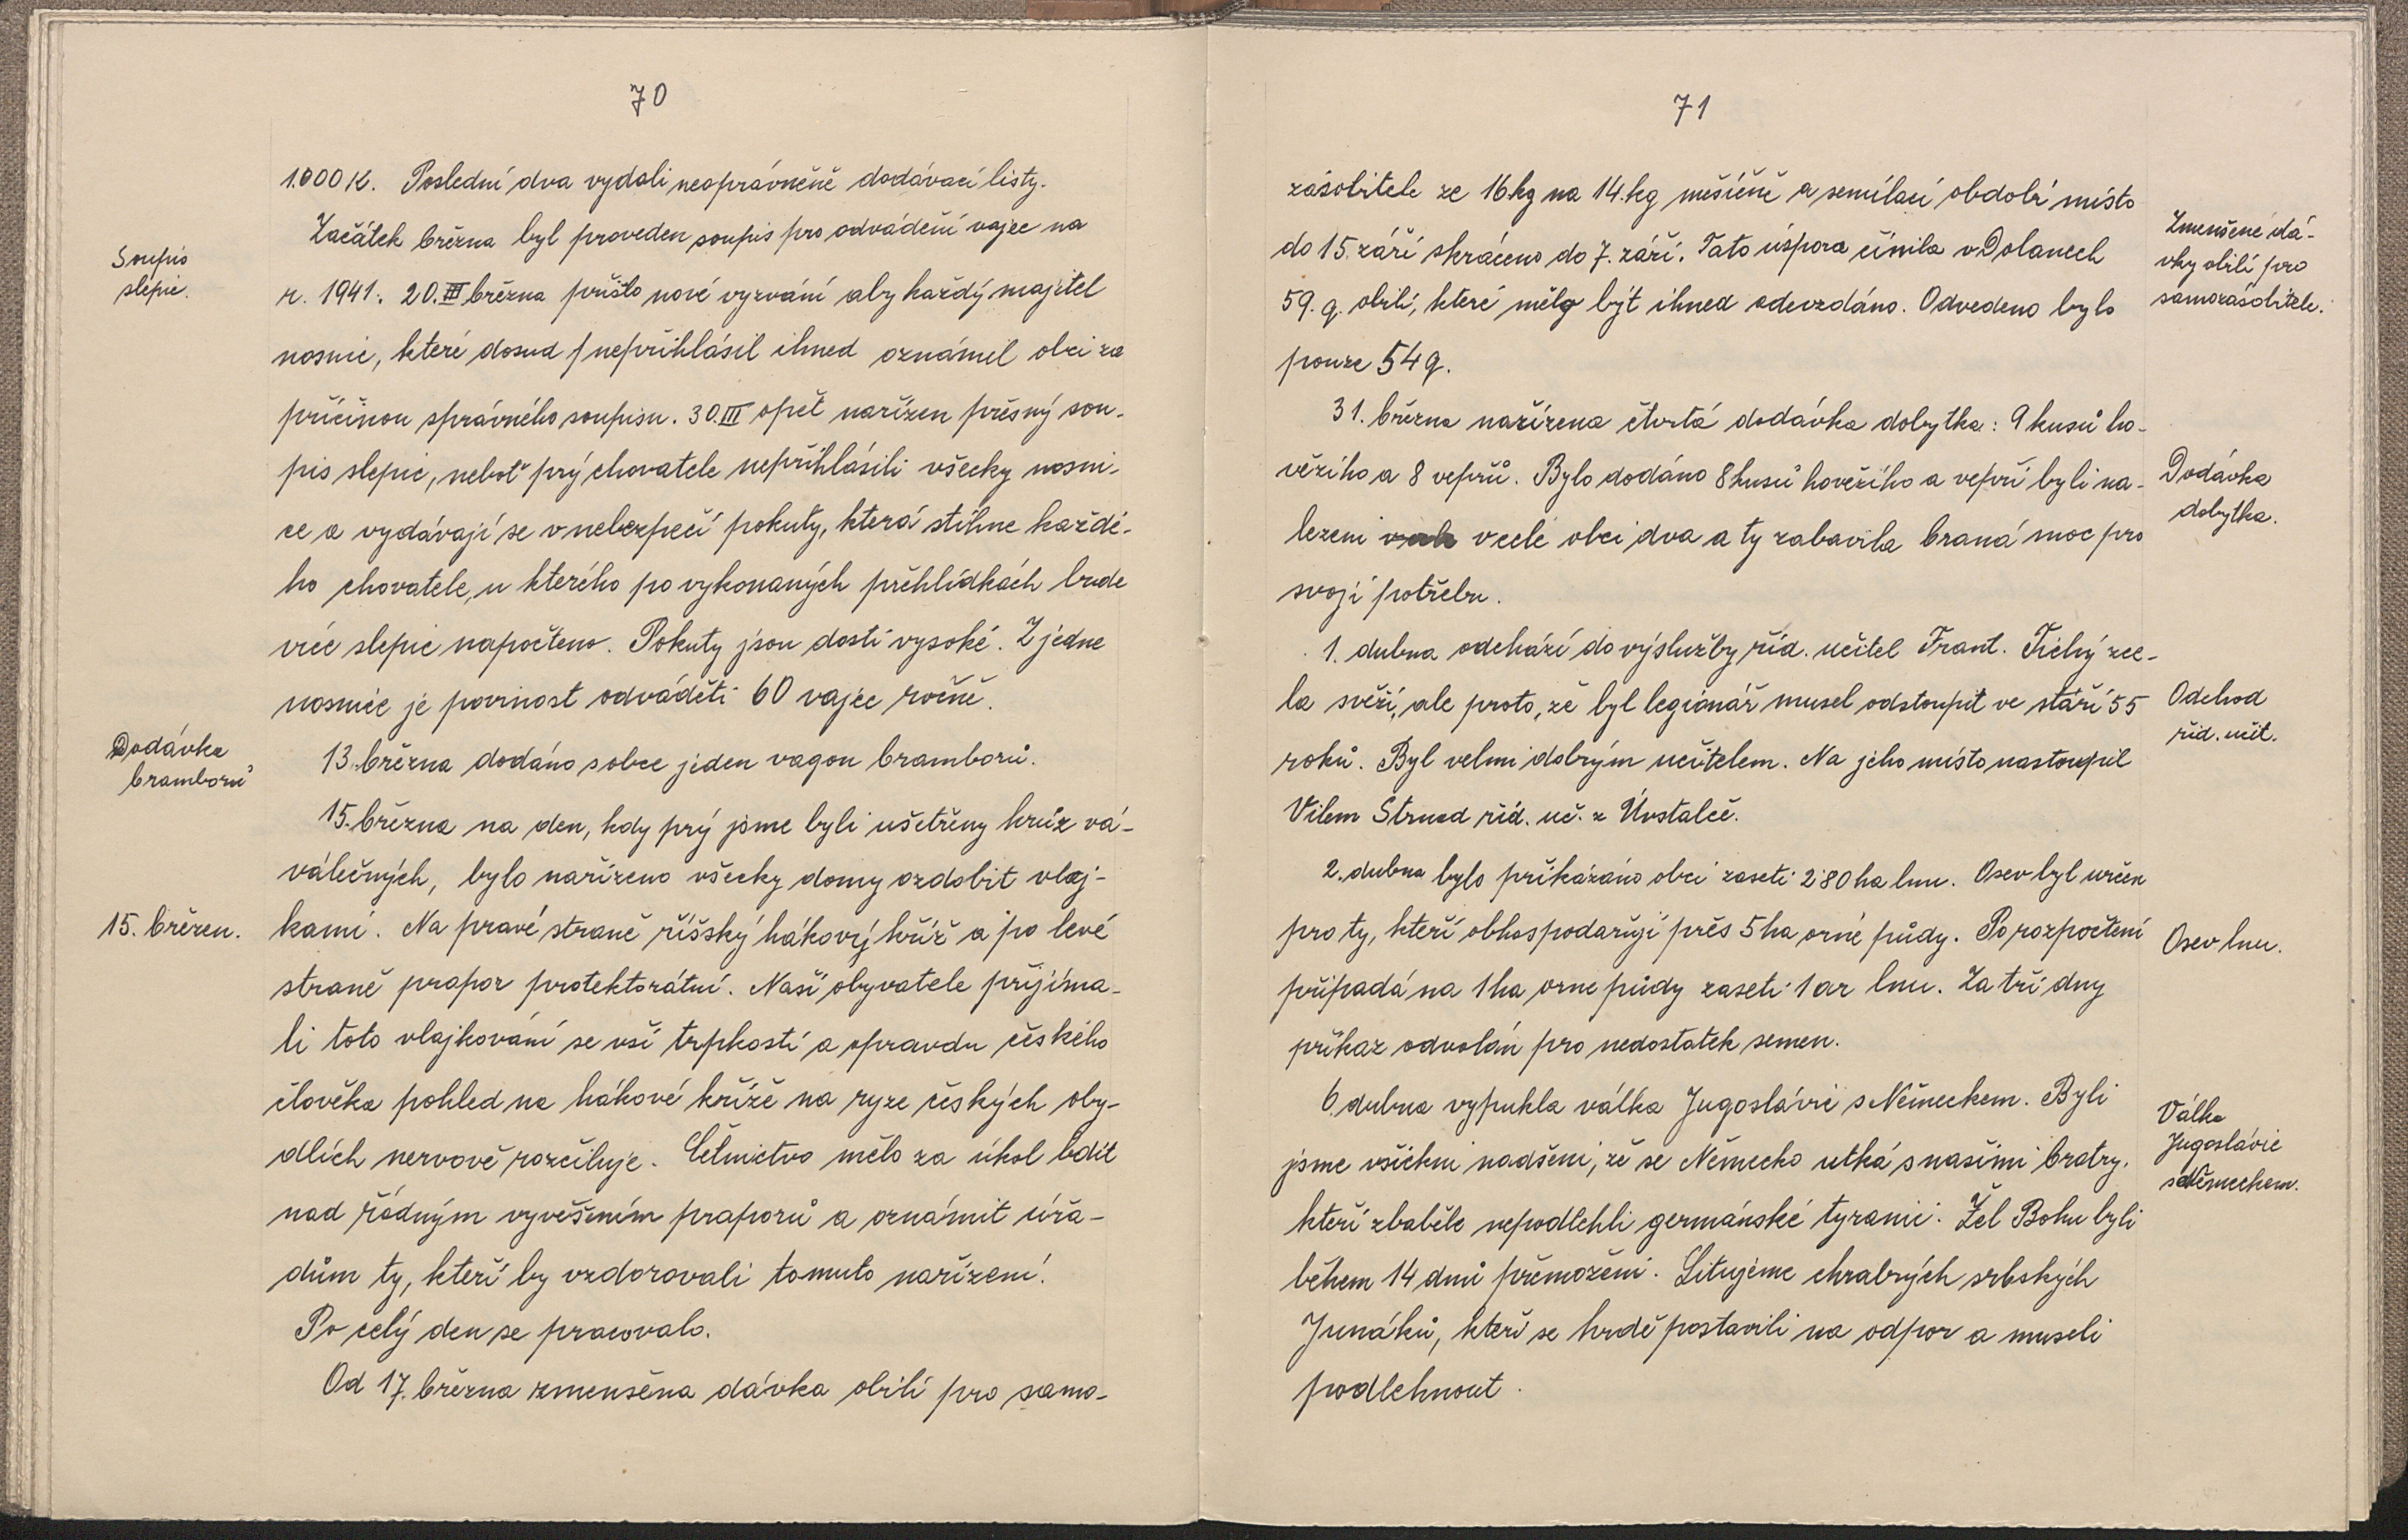 70
1.000 K. Poslední dva vydali neoprávněně dodávací listy.
Začátek března byl proveden soupis pro odvádění vajec na
Soupis
slepic.
r. 1941. 20. III března přišlo nové vyzvání aby každý majitel
nosnic, které dosud nepřihlásil ihned oznámil obci za
příčinou správného soupisu. 30. III opět nařízen přesný sou-
pis slepic, neboť prý chovatele nepřihlásili všecky nosni-
ce a vydávají se v nebezpečí pokuty, která stihne každé-
ho chovatele, u kterého po vykonaných přehlídkách bude
více slepic napočteno. Pokuty jsou dosti vysoké. Z jedne
nosnice je povinost odváděti 60 vajec ročně.
Dodávka
bramborů
13. března dodáno s obce jeden vagon bramborů.
15. března na den, kdy prý jsme byli ušetřeny hrůz vá-
válečných, bylo nařízeno všecky domy ozdobit vlaj-
15. březen.
kami. Na pravé straně říšský hákový kříž a po levé
straně prapor protektorátní. Naši obyvatele přijíma-
li toto vlajkování se vší trpkostí a opravdu českého
člověka pohled na hákové kříže na ryze českých oby-
dlích nervově rozčiluje. Četnictvo mělo za úkol bdít
nad řádným vyvěšením praporů a oznámit úřa-
dům ty, kteří by vzdorovali tomuto nařízení.
Po celý den se pracovalo.
Od 17. března zmenšena dávka obilí pro samo-
71
zásobitele ze 16 kg na 14. kg měsíčně a semílací období místo
do 15. září skráceno do 7. září. Tato úspora činila v Dolanech
59. q. obilí, které mělo být ihned odevzdáno. Odvedeno bylo
pouze 54 q.
Zmenšené dá-
vky obilí pro
samozásobitele.
31. března nařízena čtvrtá dodávka dobytka: 9 kusů ho-
vězího a 8 vepřů. Bylo dodáno 8 kusů hovězího a vepři byli na-
lezeni v celé obci dva a ty zabavila braná moc pro
svoji potřebu.
Dodávka
dobytka.
1. dubna odchází do výslužby říd. učitel Frant. Tichý zce-
la svěží, ale proto, že byl legionář musel odstoupit ve stáří 55
roků. Byl velmi dobrým učitelem. Na jeho místo nastoupil
Vilem Strnad říd. uč. z Úostalče.
Odchod
říd. učit.
2. dubna bylo přikázáno obci zaseti 2˙80 ha lnu. Osev byl určen
pro ty, kteří obhospodařují přes 5 ha orné půdy. Po rozpočtení
připadá na 1 ha orne půdy zaseti 1 ar lnu. Za tři dny
příkaz odvolán pro nedostatek semen.
Osev lnu.
6. dubna vypukla válka Jugoslávie s Německem. Byli
jsme všichni nadšeni, že se Německo utká s našimi bratry,
kteří zbaběle nepodlehli germánské tyranii. Žel Bohu byli
během 14 dnů přemoženi. Litujeme chrabrých srbských
Junáků, kteří se hrdě postavili na odpor a museli
podlehnout.
Válka
Jugoslávie
s Německem.